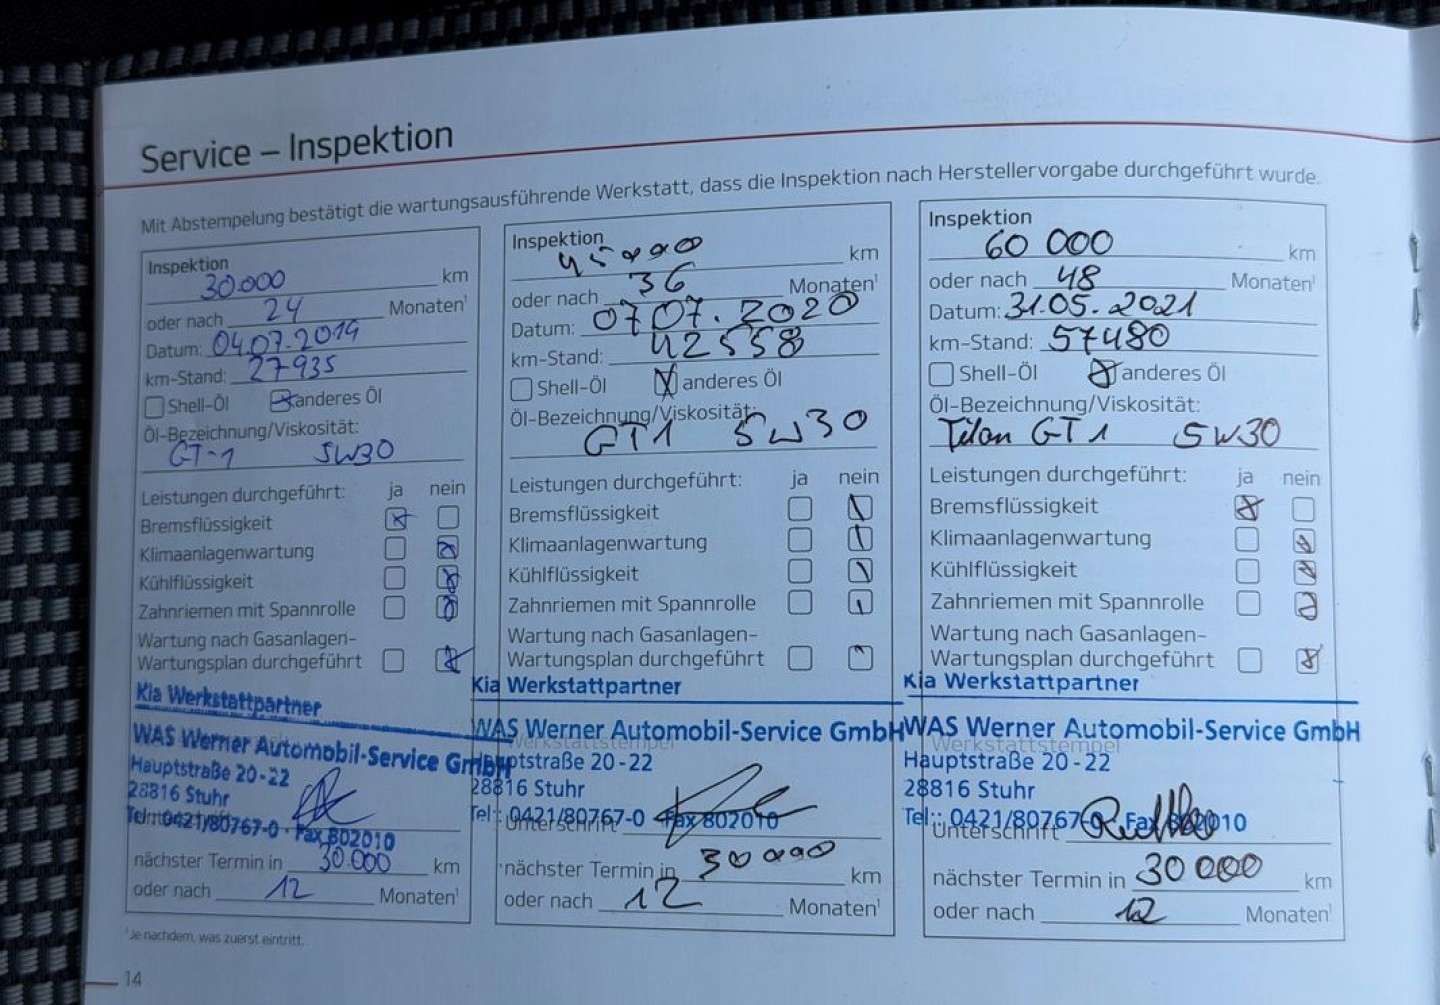 Service – Inspektion
Mit Abstempelung bestätigt die wartungsausführende Werkstatt, dass die Inspektion nach Herstellervorgabe durchgeführt wurde.
Inspektion
30.000 km
oder nach 24 Monaten¹
Datum: 04.07.2019
km-Stand: 27935
Shell-Öl anderes Öl
Öl-Bezeichnung/Viskosität:
GT-1 5W30
Leistungen durchgeführt: ja nein
Bremsflüssigkeit
Klimaanlagenwartung
Kühlflüssigkeit
Zahnriemen mit Spannrolle
Wartung nach Gasanlagen-
Wartungsplan durchgeführt
Kia Werkstattpartner
WAS Werner Automobil-Service GmbH
Hauptstraße 20-22
28816 Stuhr
Tel.: 0421/80767-0 · Fax 802010
nächster Termin in 30.000 km
oder nach 12 Monaten¹
Inspektion
45000 km
oder nach 36 Monaten¹
Datum: 07.07.2020
km-Stand: 42558
Shell-Öl anderes Öl
Öl-Bezeichnung/Viskosität:
GT1 5W30
Leistungen durchgeführt: ja nein
Bremsflüssigkeit
Klimaanlagenwartung
Kühlflüssigkeit
Zahnriemen mit Spannrolle
Wartung nach Gasanlagen-
Wartungsplan durchgeführt
Kia Werkstattpartner
WAS Werner Automobil-Service GmbH
Werkstattstempel
Hauptstraße 20-22
28816 Stuhr
Tel.: 0421/80767-0 Fax 802010
Unterschrift
nächster Termin in 30000 km
oder nach 12 Monaten¹
Inspektion
60 000 km
oder nach 48 Monaten¹
Datum: 31.05.2021
km-Stand: 57480
Shell-Öl anderes Öl
Öl-Bezeichnung/Viskosität:
GT1 5W30
Leistungen durchgeführt: ja nein
Bremsflüssigkeit
Klimaanlagenwartung
Kühlflüssigkeit
Zahnriemen mit Spannrolle
Wartung nach Gasanlagen-
Wartungsplan durchgeführt
Kia Werkstattpartner
WAS Werner Automobil-Service GmbH
Werkstattstempel
Hauptstraße 20-22
28816 Stuhr
Tel.: 0421/80767-0 Fax 802010
Unterschrift
nächster Termin in 30 000 km
oder nach 12 Monaten¹
¹Je nachdem, was zuerst eintritt.
14